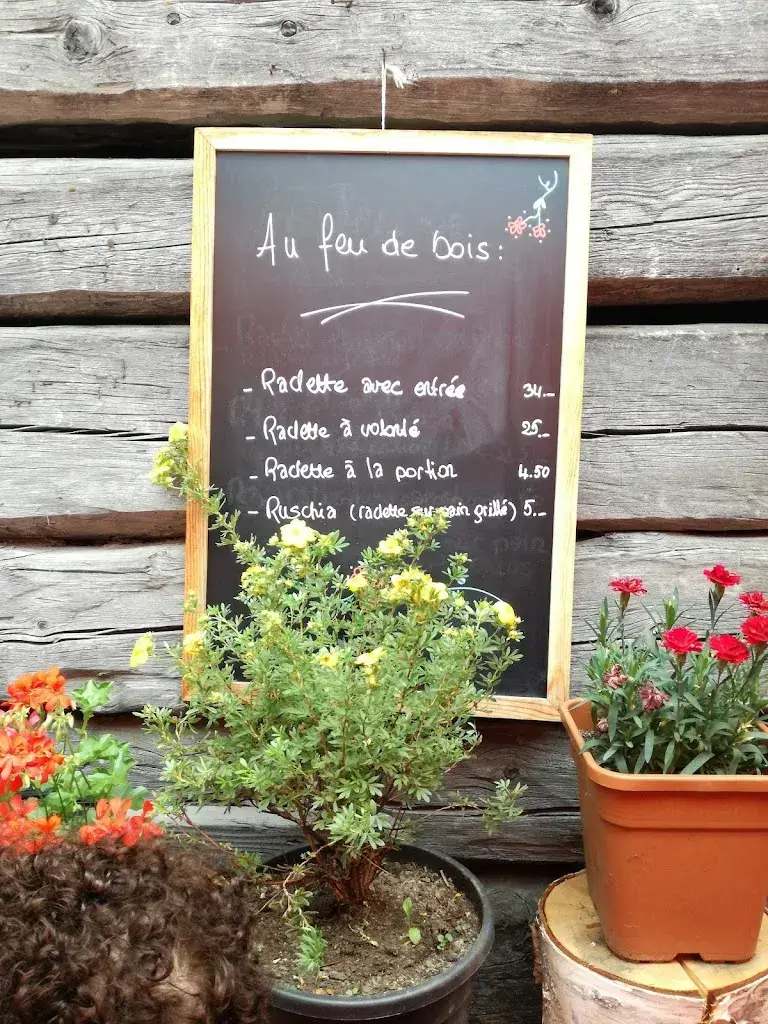 Au feu de bois:
- Raclette avec entrée 34.-
- Raclette à volonté 25.-
- Raclette à la portion 4.50
- Ruschia (raclette sur pain grillé) 5.-